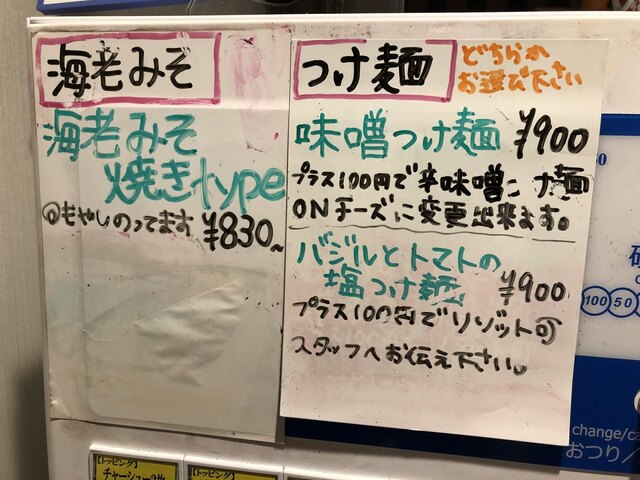 海老みそ
海老みそ
焼きtype
もやしのってます ¥830~
つけ麺
どちらか
お選び下さい
味噌つけ麺 ¥900
プラス100円で辛味噌つけ麺
ONチーズに変更出来ます。
バジルとトマトの
塩つけ麺 ¥900
プラス100円でリゾット可
スタッフへお伝え下さい。
100 50
change/ca
おつり/
【トッピング】
チャーシュー2枚
【トッピング】